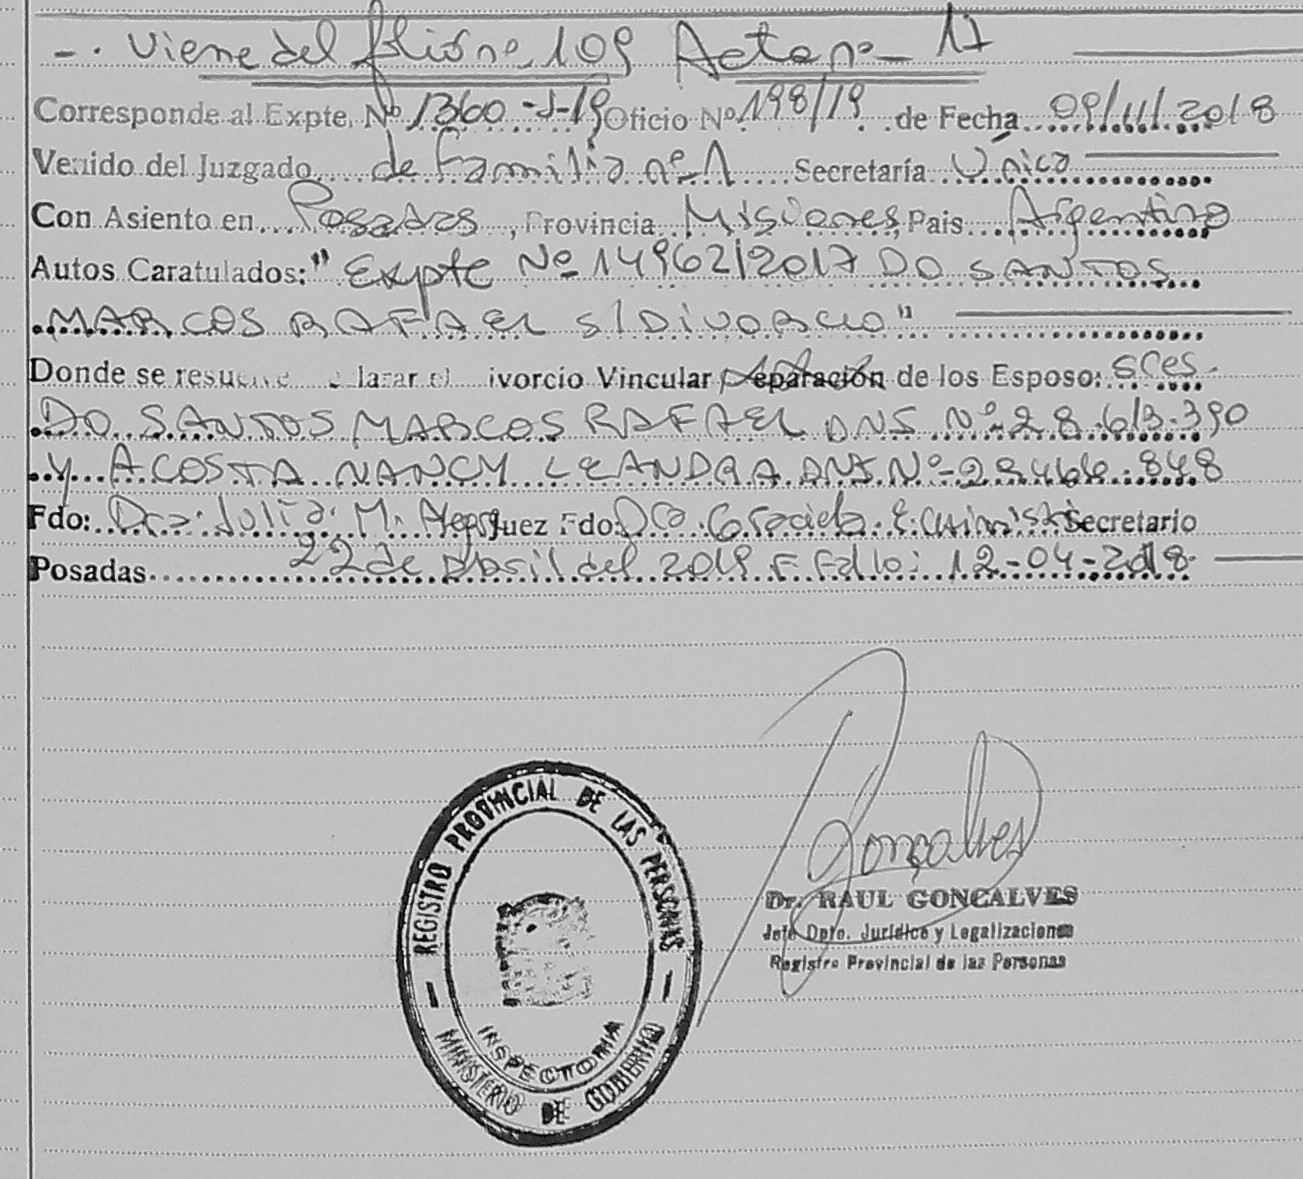 - . Viene del folio nº 109 Acta nº - 17
Corresponde al Expte. Nº 1360 - J-19 Oficio Nº 198/19 de Fecha 09/11/2018
Venido del Juzgado de Familia nº-1 Secretaría Única
Con Asiento en Posadas, Provincia Misiones, Pais Argentina
Autos Caratulados: "Expte Nº 14962/2017 DO SANTOS
MARCOS RAFAEL s/DIVORCIO"
Donde se resuelve larar el ivorcio Vincular Separación de los Esposo: sces.
DO SANTOS MARCOS RAFAEL DNI Nº-28.613.390
Y ACOSTA NANCY LEANDRA DNI Nº-29466.848
Fdo: Dra. Julia M. Juez Fdo: Dra. Graciela E. Secretario
Posadas 22 de Abril del 2019 F. Fallo: 12-04-2018
REGISTRO PROVINCIAL DE LAS PERSONAS
INSPECTORIA
MINISTERIO DE GOBIERNO
Gonçalves
Dr. RAUL GONCALVES
Jefe Dpto. Jurídico y Legalizaciones
Registro Provincial de las Personas